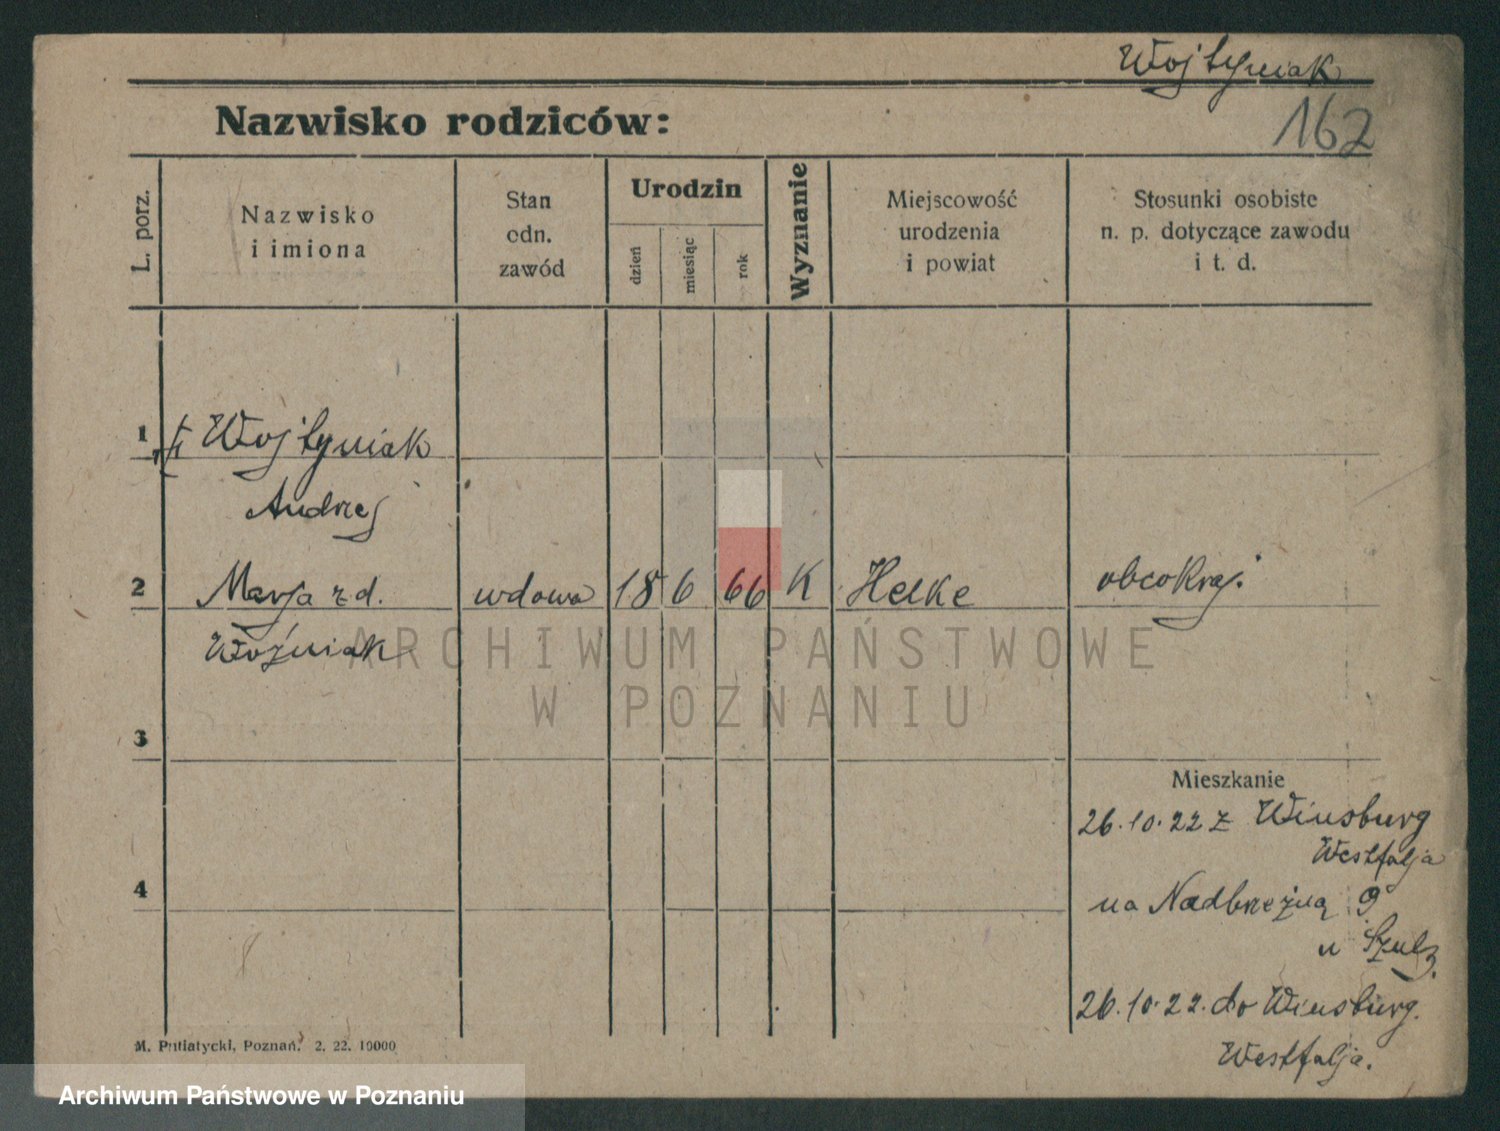 Wojtyniak
162
Nazwisko rodziców:
L. porz.
Nazwisko
i imiona
Stan
odn.
zawód
Urodzin
dzień
miesiąc
rok
Wyznanie
Miejscowość
urodzenia
i powiat
Stosunki osobiste
n. p. dotyczące zawodu
i t. d.
1 Wojtyniak
Andrzej
2 Marja z d. wdowa 18 6 66 K Helke obcokraj.
Woźniak
ARCHIWUM PAŃSTWOWE
W POZNANIU
3
Mieszkanie
26.10.22 z Winsburg
Westfalja
4
na Nadbrzeżną 9
u Szulz.
26.10.22. do Winsburg.
Westfalja.
M. Putiatycki, Poznań. 2. 22. 10000
Archiwum Państwowe w Poznaniu